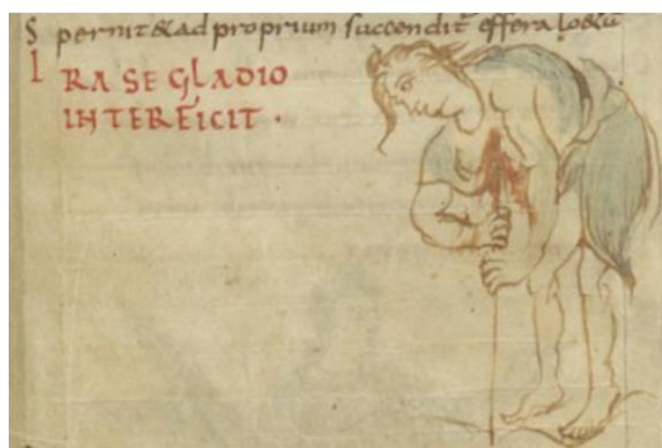 S pernit&ad proprium succendit̄ effera loetū
IRA SE GLADIO
INTERFICIT ·